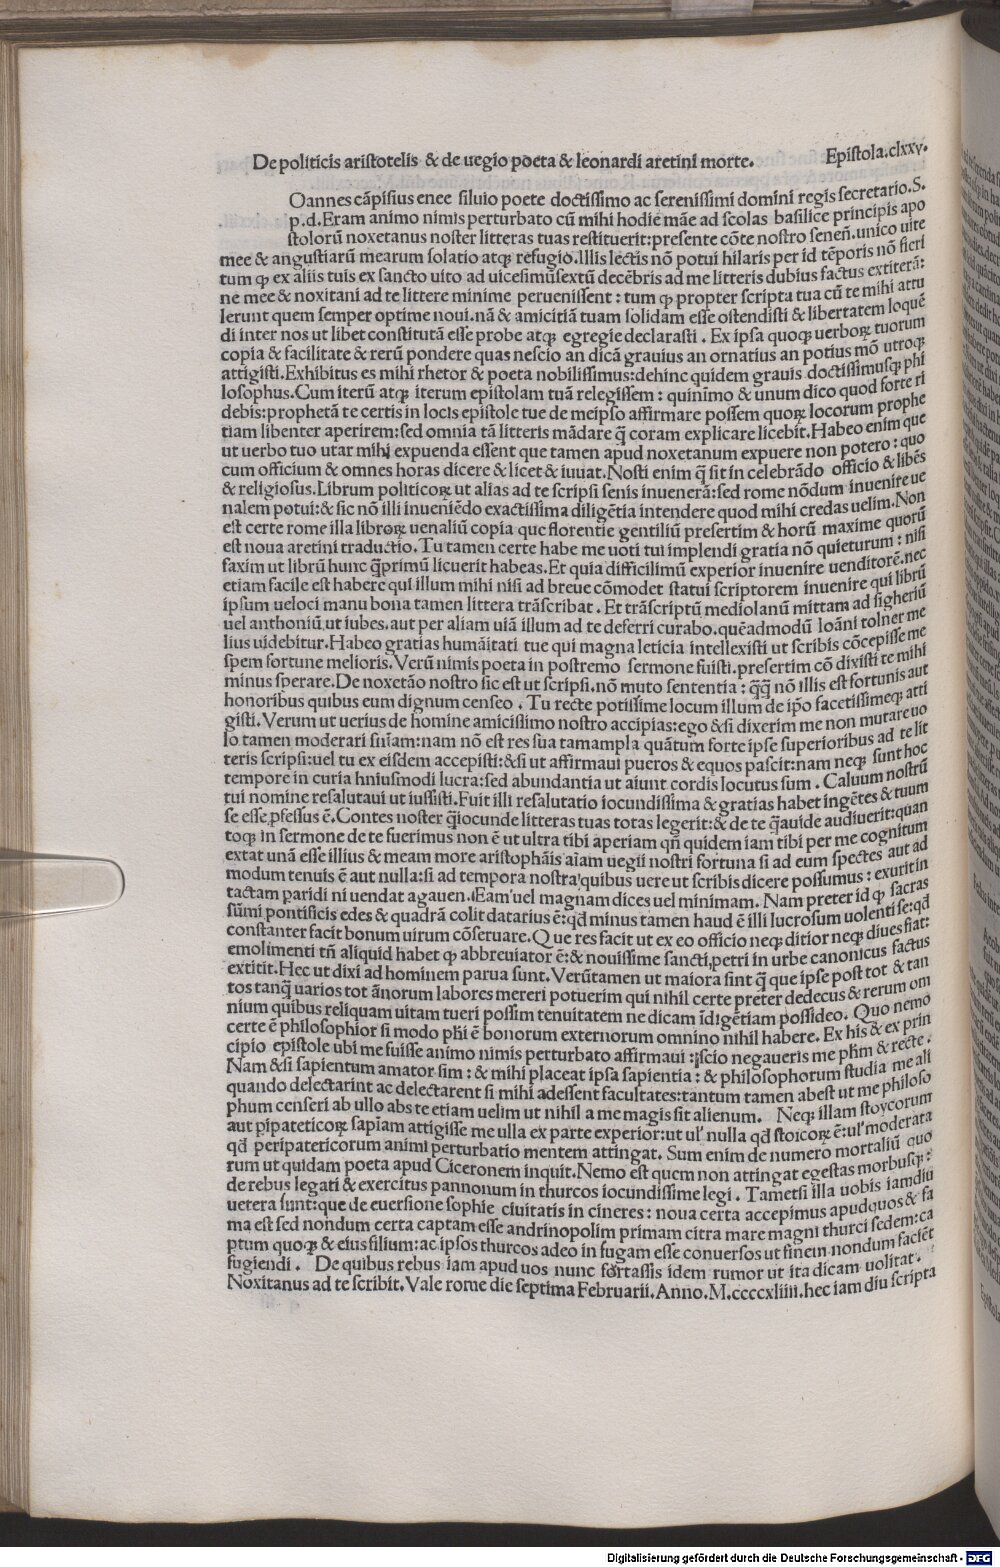 De politicis aristotelis & de uegio poeta & leonardi aretini morte. Epistola.clxxv.
Oannes cāpisius enee siluio poete doctissimo ac serenissimi domini regis secretario.S.
p.d.Eram animo nimis perturbato cū mihi hodie māe ad scolas basilice principis apo
stolorū noxetanus noster litteras tuas restituerit:presente cōte nostro seneñ.unico uite
mee & angustiarū mearum solatio atqꝫ refugio.Illis lectis nō potui hilaris per id tēporis nō fieri
tum ꝙ ex aliis tuis ex sancto uito ad uicesimūsextū decēbris ad me litteris dubius factus extiterā:
ne mee & noxitani ad te littere minime peruenissent : tum ꝙ propter scripta tua cū te mihi attu
lerunt quem semper optime noui.nā & amicitiā tuam solidam esse ostendisti & libertatem loquē
di inter nos ut libet constitutā esse probe atqꝫ egregie declarasti . Ex ipsa quoqꝫ uerboꝝ tuorum
copia & facilitate & rerū pondere quas nescio an dicā grauius an ornatius an potius mō utroqꝫ
attigisti.Exhibitus es mihi rhetor & poeta nobilissimus:dehinc quidem grauis doctissimusqꝫ phi
losophus.Cum iterū atqꝫ iterum epistolam tuā relegissem : quinimo & unum dico quod forte ri
debis:prophetā te certis in locis epistole tue de meipso affirmare possem quoꝝ locorum prophe
tiam libenter aperirem:sed omnia tā litteris mādare q̄ coram explicare licebit.Habeo enim que
ut uerbo tuo utar mihi expuenda essent que tamen apud noxetanum expuere non potero : quo
cum officium & omnes horas dicere & licet & iuuat.Nosti enim q̄ sit in celebrādo officio & libēs
& religiosus.Librum politicoꝝ ut alias ad te scripsi senis inuenerā:sed rome nōdum inuenire ue
nalem potui:& sic nō illi inueniēdo exactissima diligētia intendere quod mihi credas uelim.Non
est certe rome illa libroꝝ uenaliū copia que florentie gentiliū presertim & horū maxime quorū
est noua aretini traductio.Tu tamen certe habe me uoti tui implendi gratia nō quieturum : nisi
faxim ut librū hunc q̄primū licuerit habeas.Et quia difficilimū experior inuenire uenditorē.nec
etiam facile est habere qui illum mihi nisi ad breue cōmodet statui scriptorem inuenire qui librū
ipsum ueloci manu bona tamen littera trāscribat . Et trāscriptū mediolanū mittam ad sigheriū
uel anthoniū ut iubes.aut per aliam uiā illum ad te deferri curabo.quēadmodū Ioāni tolner me
lius uidebitur.Habeo gratias humāitati tue qui magna leticia intellexisti ut scribis cōcepisse me
spem fortune melioris.Verū nimis poeta in postremo sermone fuisti.presertim cō dixisti te mihi
minus sperare.De noxetāo nostro sic est ut scripsi.nō muto sententia : q̄q̄ nō illis est fortunis aut
honoribus quibus eum dignum censeo . Tu recte potissime locum illum de ip̄o facetissimeqꝫ atti
gisti.Verum ut uerius de homine amicissimo nostro accipias:ego &si dixerim me non mutare uo
lo tamen moderari sn̄iam:nam nō est res sua tamampla quātum forte ipse superioribus ad te lit
teris scripsi:uel tu ex eisdem accepisti:&si ut affirmaui pueros & equos pascit:nam neqꝫ sunt hoc
tempore in curia hniusmodi lucra:sed abundantia ut aiunt cordis locutus sum . Caluum nostrū
tui nomine resalutaui ut iussisti.Fuit illi resalutatio iocundissima & gratias habet ingētes & tuum
se esse ꝓfessus ē.Contes noster q̄iocunde litteras tuas totas legerit:& de te q̄auide audiuerit:quan
toqꝫ in sermone de te fuerimus non ē ut ultra tibi aperiam qn̄ quidem iam tibi per me cognitum
extat unā esse illius & meam more aristophāis aīam uegii nostri fortuna si ad eum spectes aut ad
modum tenuis ē aut nulla:si ad tempora nostra quibus uere ut scribis dicere possumus : exurit in
tactam paridi ni uendat agauen.Eam uel magnam dices uel minimam. Nam preter id ꝙ sacras
sūmi pontisicis edes & quadrā colit datarius ē:qd̄ minus tamen haud ē illi lucrosum uolenti se:qd̄
constanter facit bonum uirum cōseruare.Que res facit ut ex eo officio neqꝫ ditior neqꝫ diues fiat:
emolimenti tn̄ aliquid habet ꝙ abbreuiator ē:& nouissime sancti,petri in urbe canonicus factus
extitit.Hec ut dixi ad hominem parua sunt.Verūtamen ut maiora sint q̄ que ipse post tot & tan
tos tanq̄ uarios tot ānorum labores mereri potuerim qui nihil certe preter dedecus & rerum om
nium quibus reliquam uitam tueri possim tenuitatem ne dicam īdigētiam possideo. Quo nemo
certe ē philosophior si modo phī ē bonorum externorum omnino nihil habere. Ex his & ex prin
cipio epistole ubi me fuisse animo nimis perturbato affirmaui :scio negaueris me phm̄ & recte .
Nam &si sapientum amator sim : & mihi placeat ipsa sapientia : & philosophorum studia me ali
quando delectarint ac delectarent si mihi adessent facultates:tantum tamen abest ut me philoso
phum censeri ab ullo abs te etiam uelim ut nihil a me magis sit alienum. Neqꝫ illam stoycorum
aut ꝑipateticoꝝ sapīam attigisse me ulla ex parte experior:ut ul' nulla qd̄ stoicoꝝ ē:ul' moderata
qd̄ peripateticorum animi perturbatio mentem attingat. Sum enim de numero mortaliū quo
rum ut quidam poeta apud Ciceronem inquit.Nemo est quem non attingat egestas morbusqꝫ:
de rebus legati & exercitus pannonum in thurcos iocundissime legi . Tametsi illa uobis iamdiu
uetera sunt:que de euersione sophie ciuitatis in cineres : noua certa accepimus apudquos & fa
ma est sed nondum certa captam esse andrinopolim primam citra mare magni thurci sedem:ca
ptum quoqꝫ & eius filium:ac ipsos thurcos adeo in fugam esse conuersos ut finein nondum faciēt
fugiendi . De quibus rebus iam apud uos nunc fortassis idem rumor ut ita dicam uolitat .
Noxitanus ad te scribit.Vale rome die septima Februarii.Anno.M.ccccxliiii.hec iam diu scripta
Digitalisierung gefördert durch die Deutsche Forschungsgemeinschaft - DFG